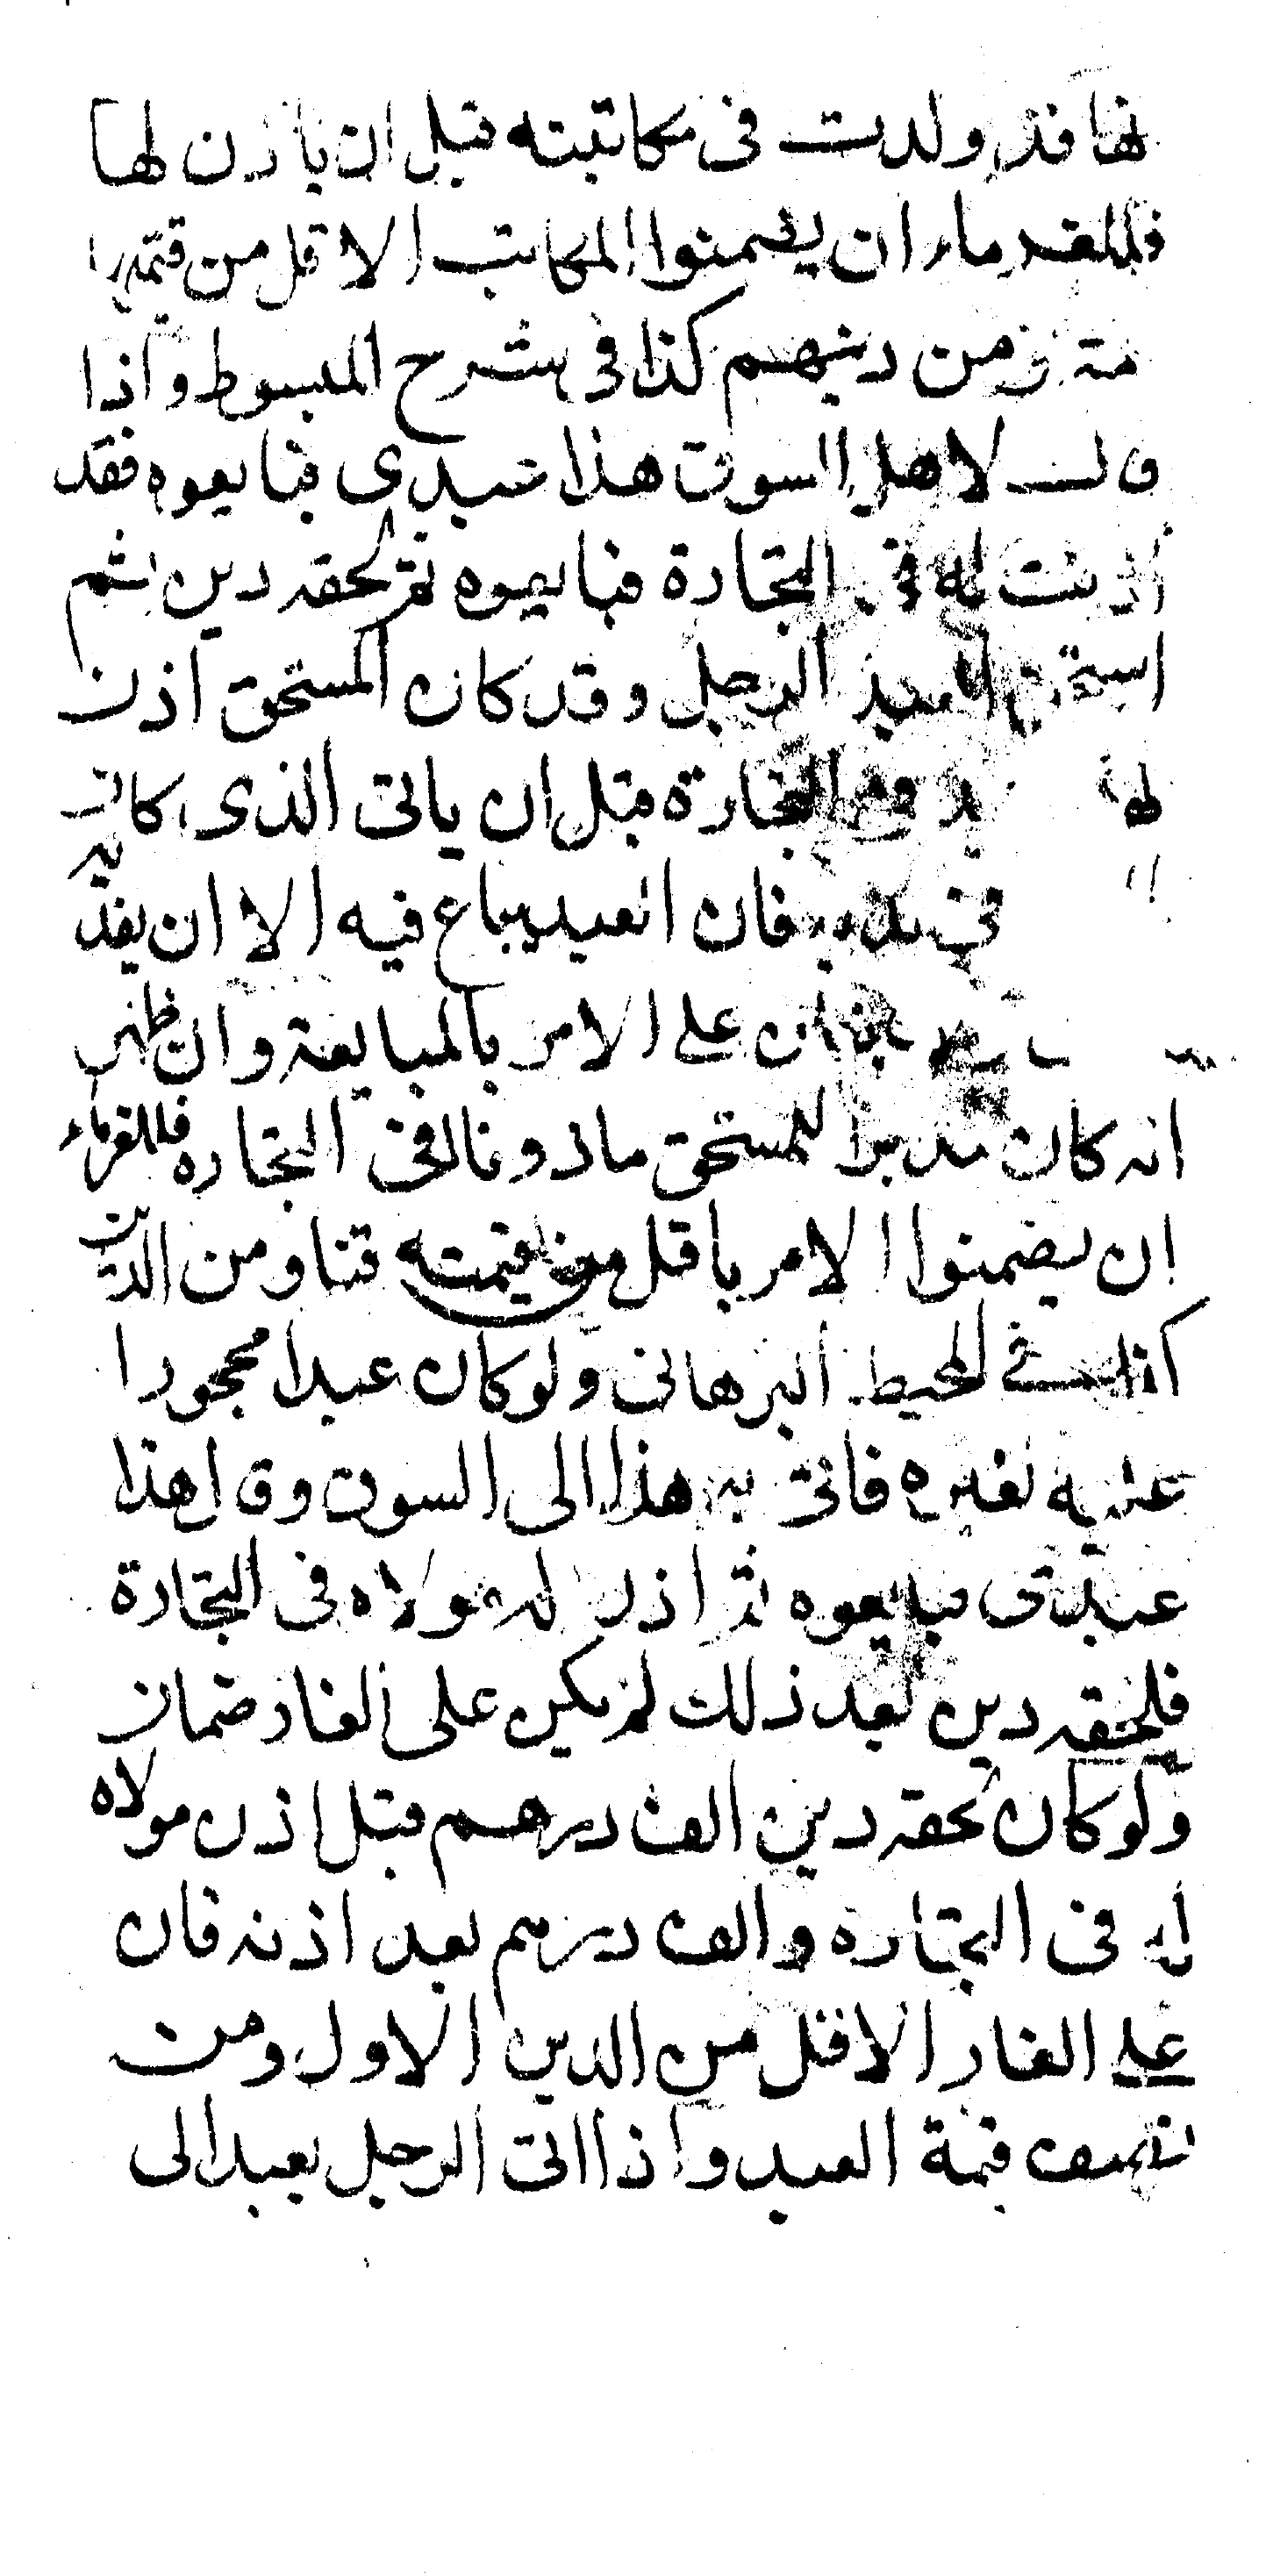 انها قد ولدت فى مكاتبته قبل ان ياذن لها
فللغرماء ان يضمنوا المكاتب الاقل من قيمتها
ومن دينهم كذا فى شرح المبسوط واذا
قال لاهل السوق هذا عبدى فبايعوه فقد
أذنت له فى التجارة فبايعوه ثم لحقه دين ثم
استحق العبد الرجل وقد كان المستحق اذن
له فى التجارة قبل ان ياتى الذى كان
فى يده فان العبد يباع فيه الا ان يفديه
ضمان على الامر بالمبايعة وان ظهر
انه كان مدبرا للمستحق ماذونا فى التجاره فللغرماء
ان يضمنوا الامر باقل من قيمته قنا ومن الدين
كذا فى المحيط البرهانى ولو كان عبدا محجورا
عليه لغيره فاتى به هذا الى السوق وقال هذا
عبدى فبايعوه ثم اذن له مولاه فى التجارة
فلحقه دين بعد ذلك لم يكن على الغار ضمان
ولو كان لحقه دين الف درهم قبل اذن مولاه
له فى التجاره والف درهم بعد اذنه فان
على الغار الاقل من الدين الاول ومن
نصف قيمة العبد واذا اتى الرجل بعبد الى